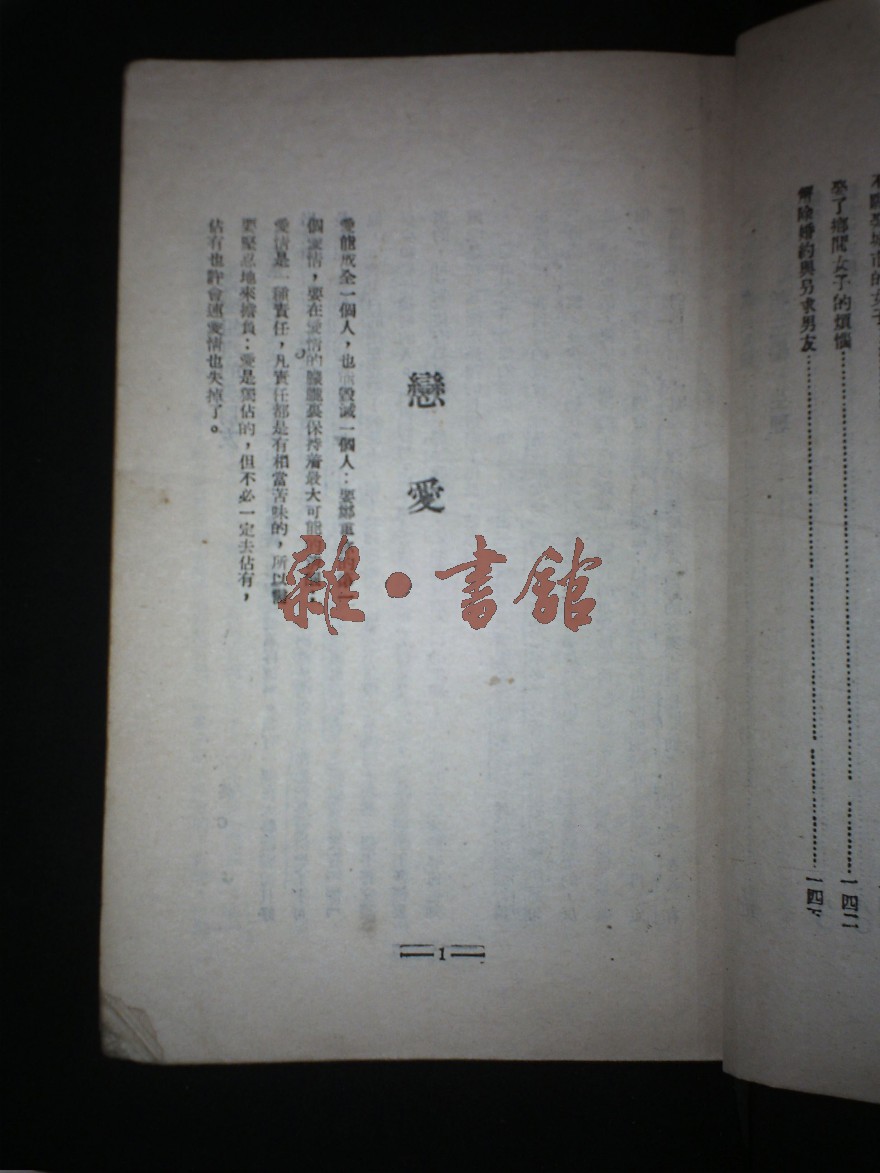 娶了鄉間女子的煩惱……一四二
解除婚約與另求男友……一四七
戀愛
愛能成全一個人，也 毀滅一個人：要鄭重
個愛情，要在愛情的朦朧裏保持着最大可能的
愛情是一種責任，凡責任都是有相當苦味的，所以
要堅忍地來擔負：愛是獨佔的，但不必一定去佔有，
佔有也許會連愛情也失掉了。
1
雜·書館